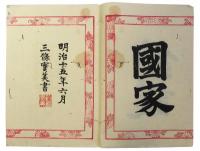 國家
明治十五年六月
三條實美書